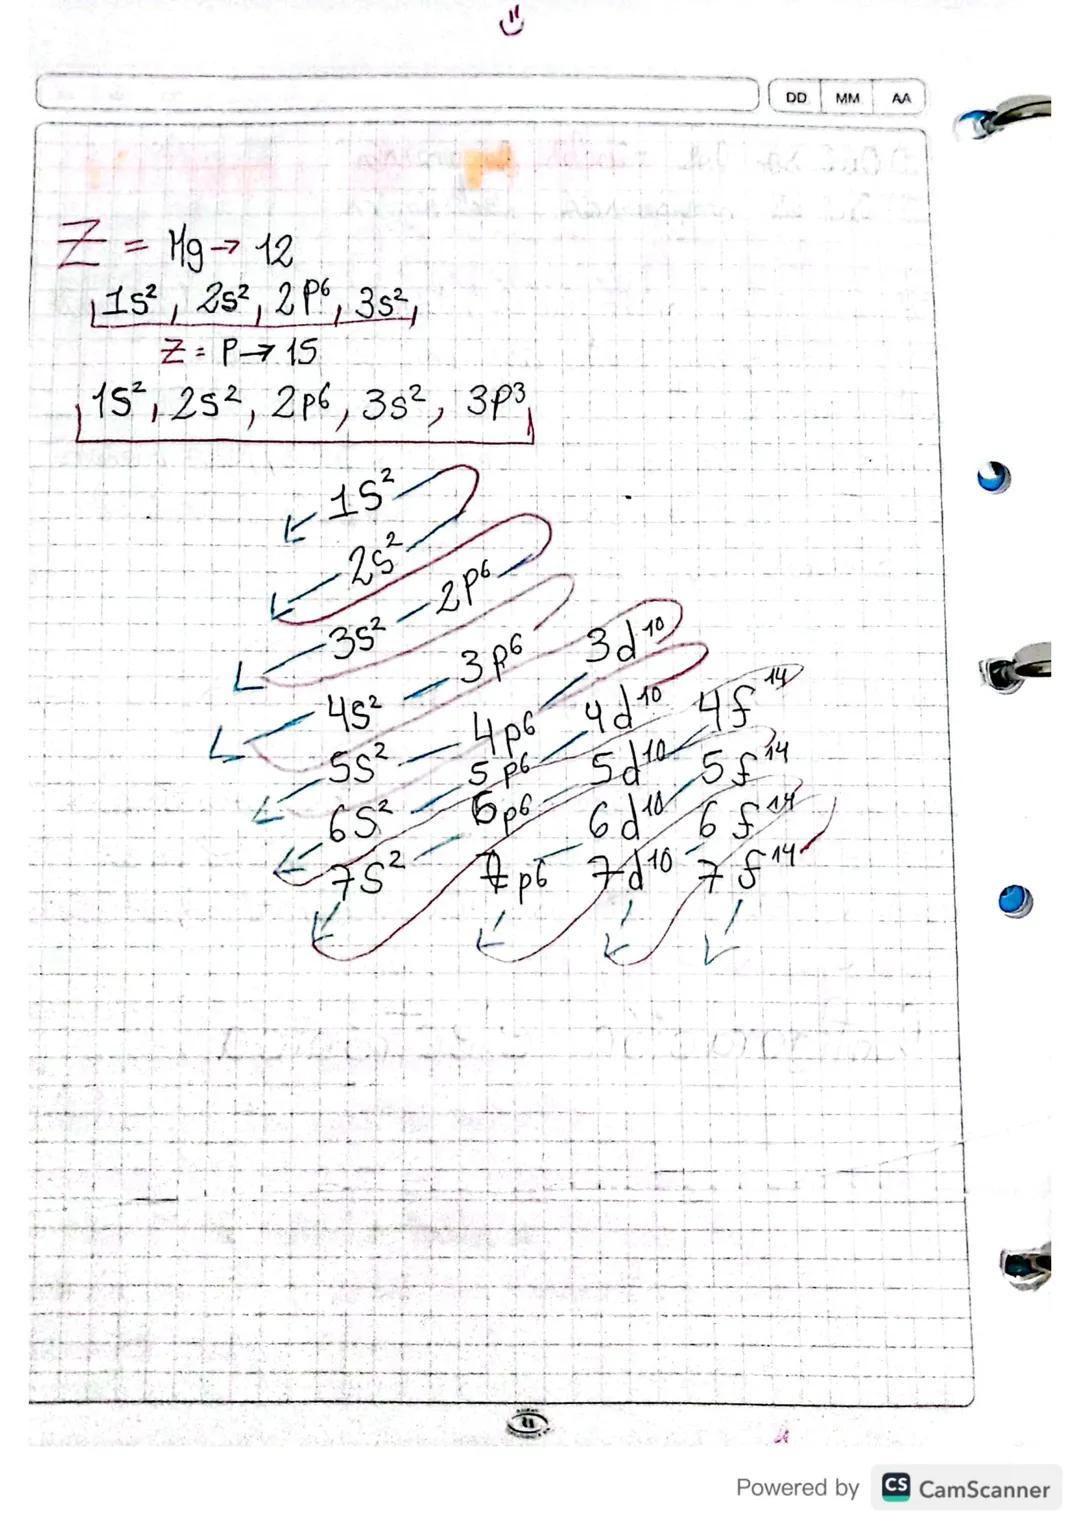 DD MM AA
Z = Mg → 12
1s², 2s², 2p⁶, 3s²,
Z = P → 15
1s², 2s², 2p⁶, 3s², 3p³,
1s²
2s²
2p⁶
3s²
3p⁶ 3d¹⁰
4s² 4p⁶ 4d¹⁰ 4f¹⁴
5s² 5p⁶ 5d¹⁰ 5f¹⁴
6s² 6p⁶ 6d¹⁰ 6f¹⁴
7s² 7p⁶ 7d¹⁰ 7f¹⁴
Powered by CS CamScanner